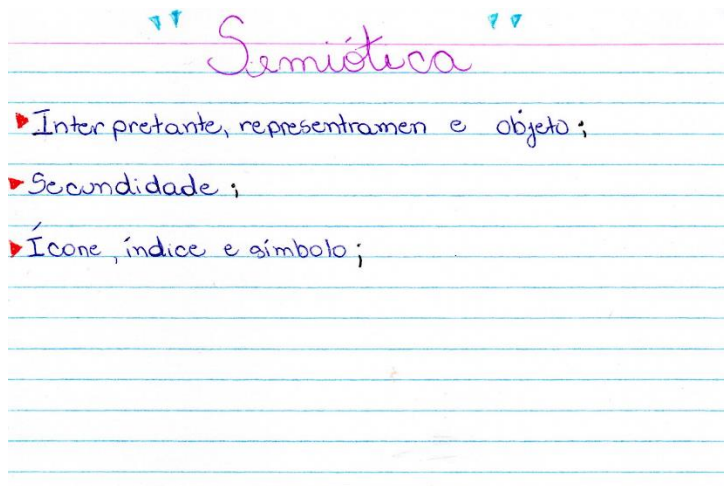 "Semiótica"
Interpretante, representramen e objeto;
Secundidade;
Ícone, índice e símbolo;